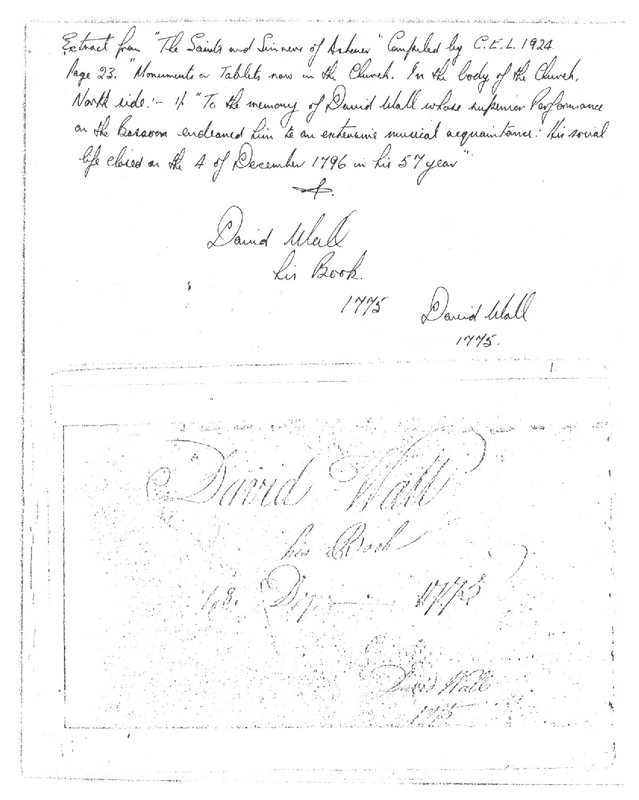 Extract from "The Saints and Sinners of Ashover" Compiled by C.E.L. 1924
Page 23. "Monuments or Tablets now in the Church. In the body of the Church,
North side:- "To the memory of David Wall whose superior Performance
on the Bassoon endeared him to an extensive musical acquaintance: His social
life closed on the 4 of December 1796 in his 57 year"
David Wall
his Book.
1775
David Wall
1775.
1.
David Wall
his Book
1775
David Wall
1775